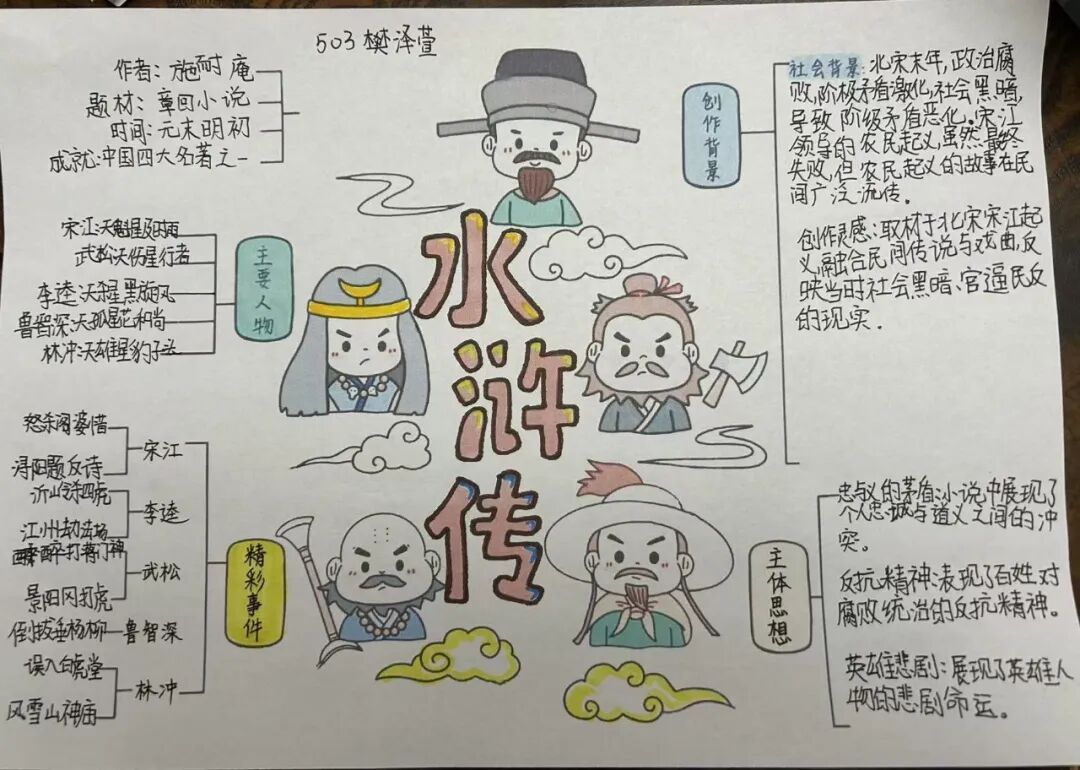 503樊泽萱
作者：施耐庵
题材：章回小说
时间：元末明初
成就：中国四大名著之一
主要人物
宋江：天魁星及时雨
武松：天伤星行者
李逵：天杀星黑旋风
鲁智深：天孤星花和尚
林冲：天雄星豹子头
精彩事件
宋江
怒杀阎婆惜
浔阳题反诗
李逵
沂山杀四虎
江州劫法场
武松
醉打蒋门神
景阳冈打虎
鲁智深
倒拔垂杨柳
林冲
误入白虎堂
风雪山神庙
水浒传
创作背景
社会背景：北宋末年，政治腐
败，阶极矛盾激化，社会黑暗，
导致阶级矛盾恶化。宋江
领导的农民起义，虽然最终
失败，但农民起义的故事在民
间广泛流传。
创作灵感：取材于北宋宋江起
义，融合民间传说与戏曲，反
映当时社会黑暗、官逼民反
的现实.
主体思想
忠与义的矛盾：小说中展现了
个人忠诚与道义之间的冲
突。
反抗精神：表现了百姓对
腐败统治的反抗精神。
英雄悲剧：展现了英雄人
物的悲剧命运。